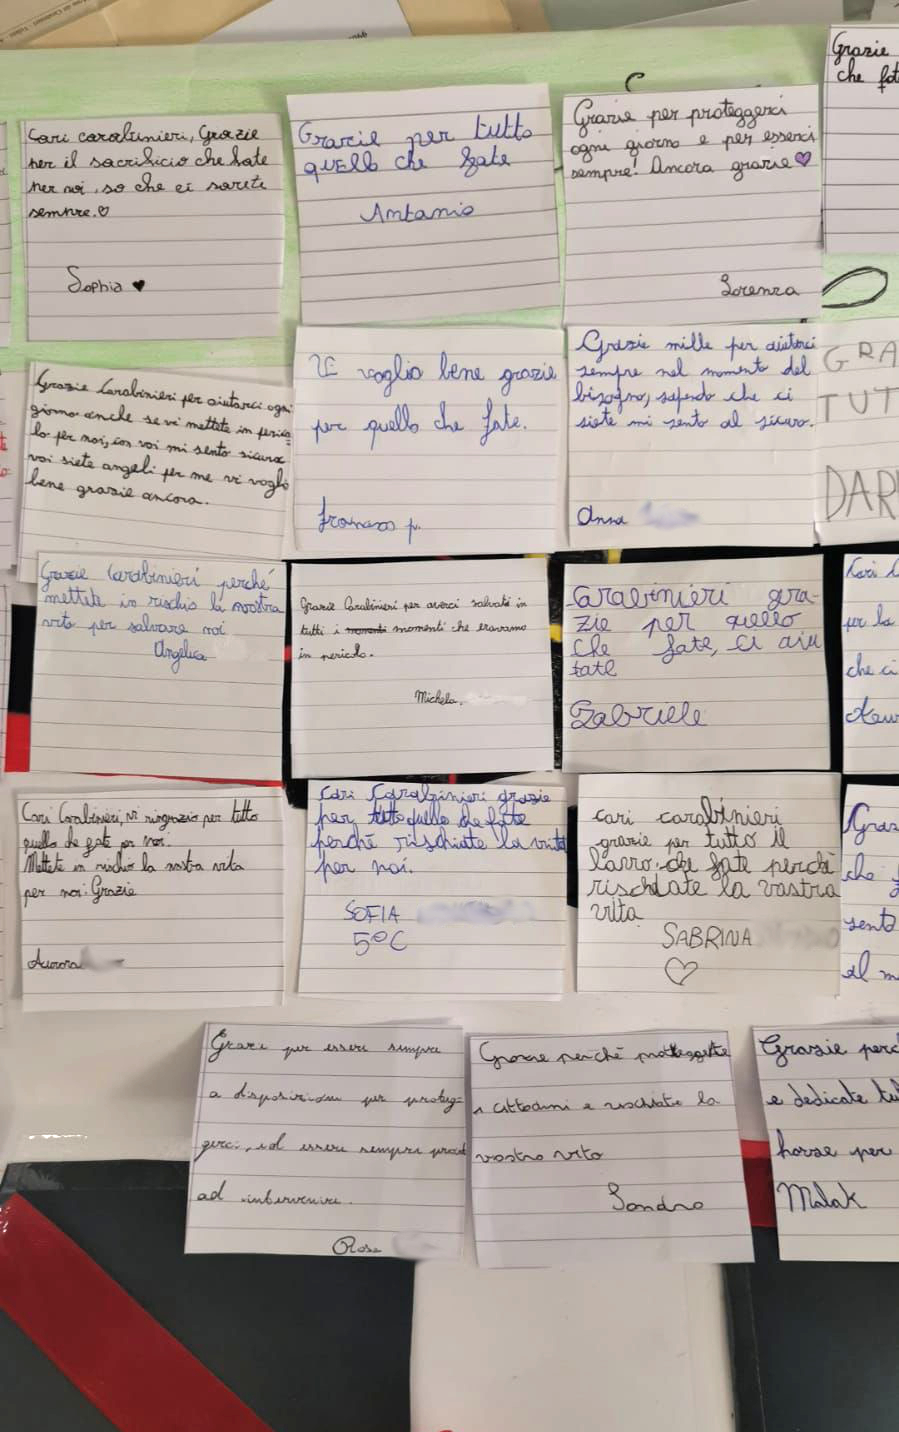 Cari carabinieri, Grazie
per il sacrificio che fate
per noi, so che ci sarete
sempre.
Sophia
Grazie per tutto
quello che fate
Antonio
Grazie per proteggerci
ogni giorno e per esserci
sempre! Ancora grazie
Lorenza
Grazie
che
Grazie Carabinieri per aiutarci ogni
giorno anche se vi mettete in perico
lo per noi, con voi mi sento sicura
voi siete angeli per me vi voglio
bene grazie ancora.
Vi voglio bene grazie
per quello che fate.
Francesco p.
Grazie mille per aiutarci
sempre nel momento del
bisogno, sapendo che ci
siete mi sento al sicuro.
Anna
GRA
TUT
DAR
Grazie Carabinieri perché
mettete in rischio la vostra
vita per salvare noi
Angelica
Grazie Carabinieri per averci salvati in
tutti i momenti che eravamo
in pericolo.
Michela.
Carabinieri gra-
zie per quello
che fate, ci aiu
tate
Gabriele
Cari
per la
che ci
Cari Carabinieri, vi ringrazio per tutto
quello che fate per noi.
Mettete in rischio la vostra vita
per noi. Grazie
Aurora
Cari Carabinieri grazie
per tutto quello che fate
perché rischiate la vita
per noi.
SOFIA
5°C
cari carabinieri
grazie per tutto il
lavoro che fate perché
rischiate la vostra
vita
SABRINA
Graz
che
sento
al m
Grazie per essere sempre
a disposizione per proteg-
gerci, ed essere sempre pronti
ad intervenire.
Rosa
Grazie perché proteggete
i cittadini e rischiate la
vostra vita
Sandro
Grazie perc
e dedicate
horse per
Malak